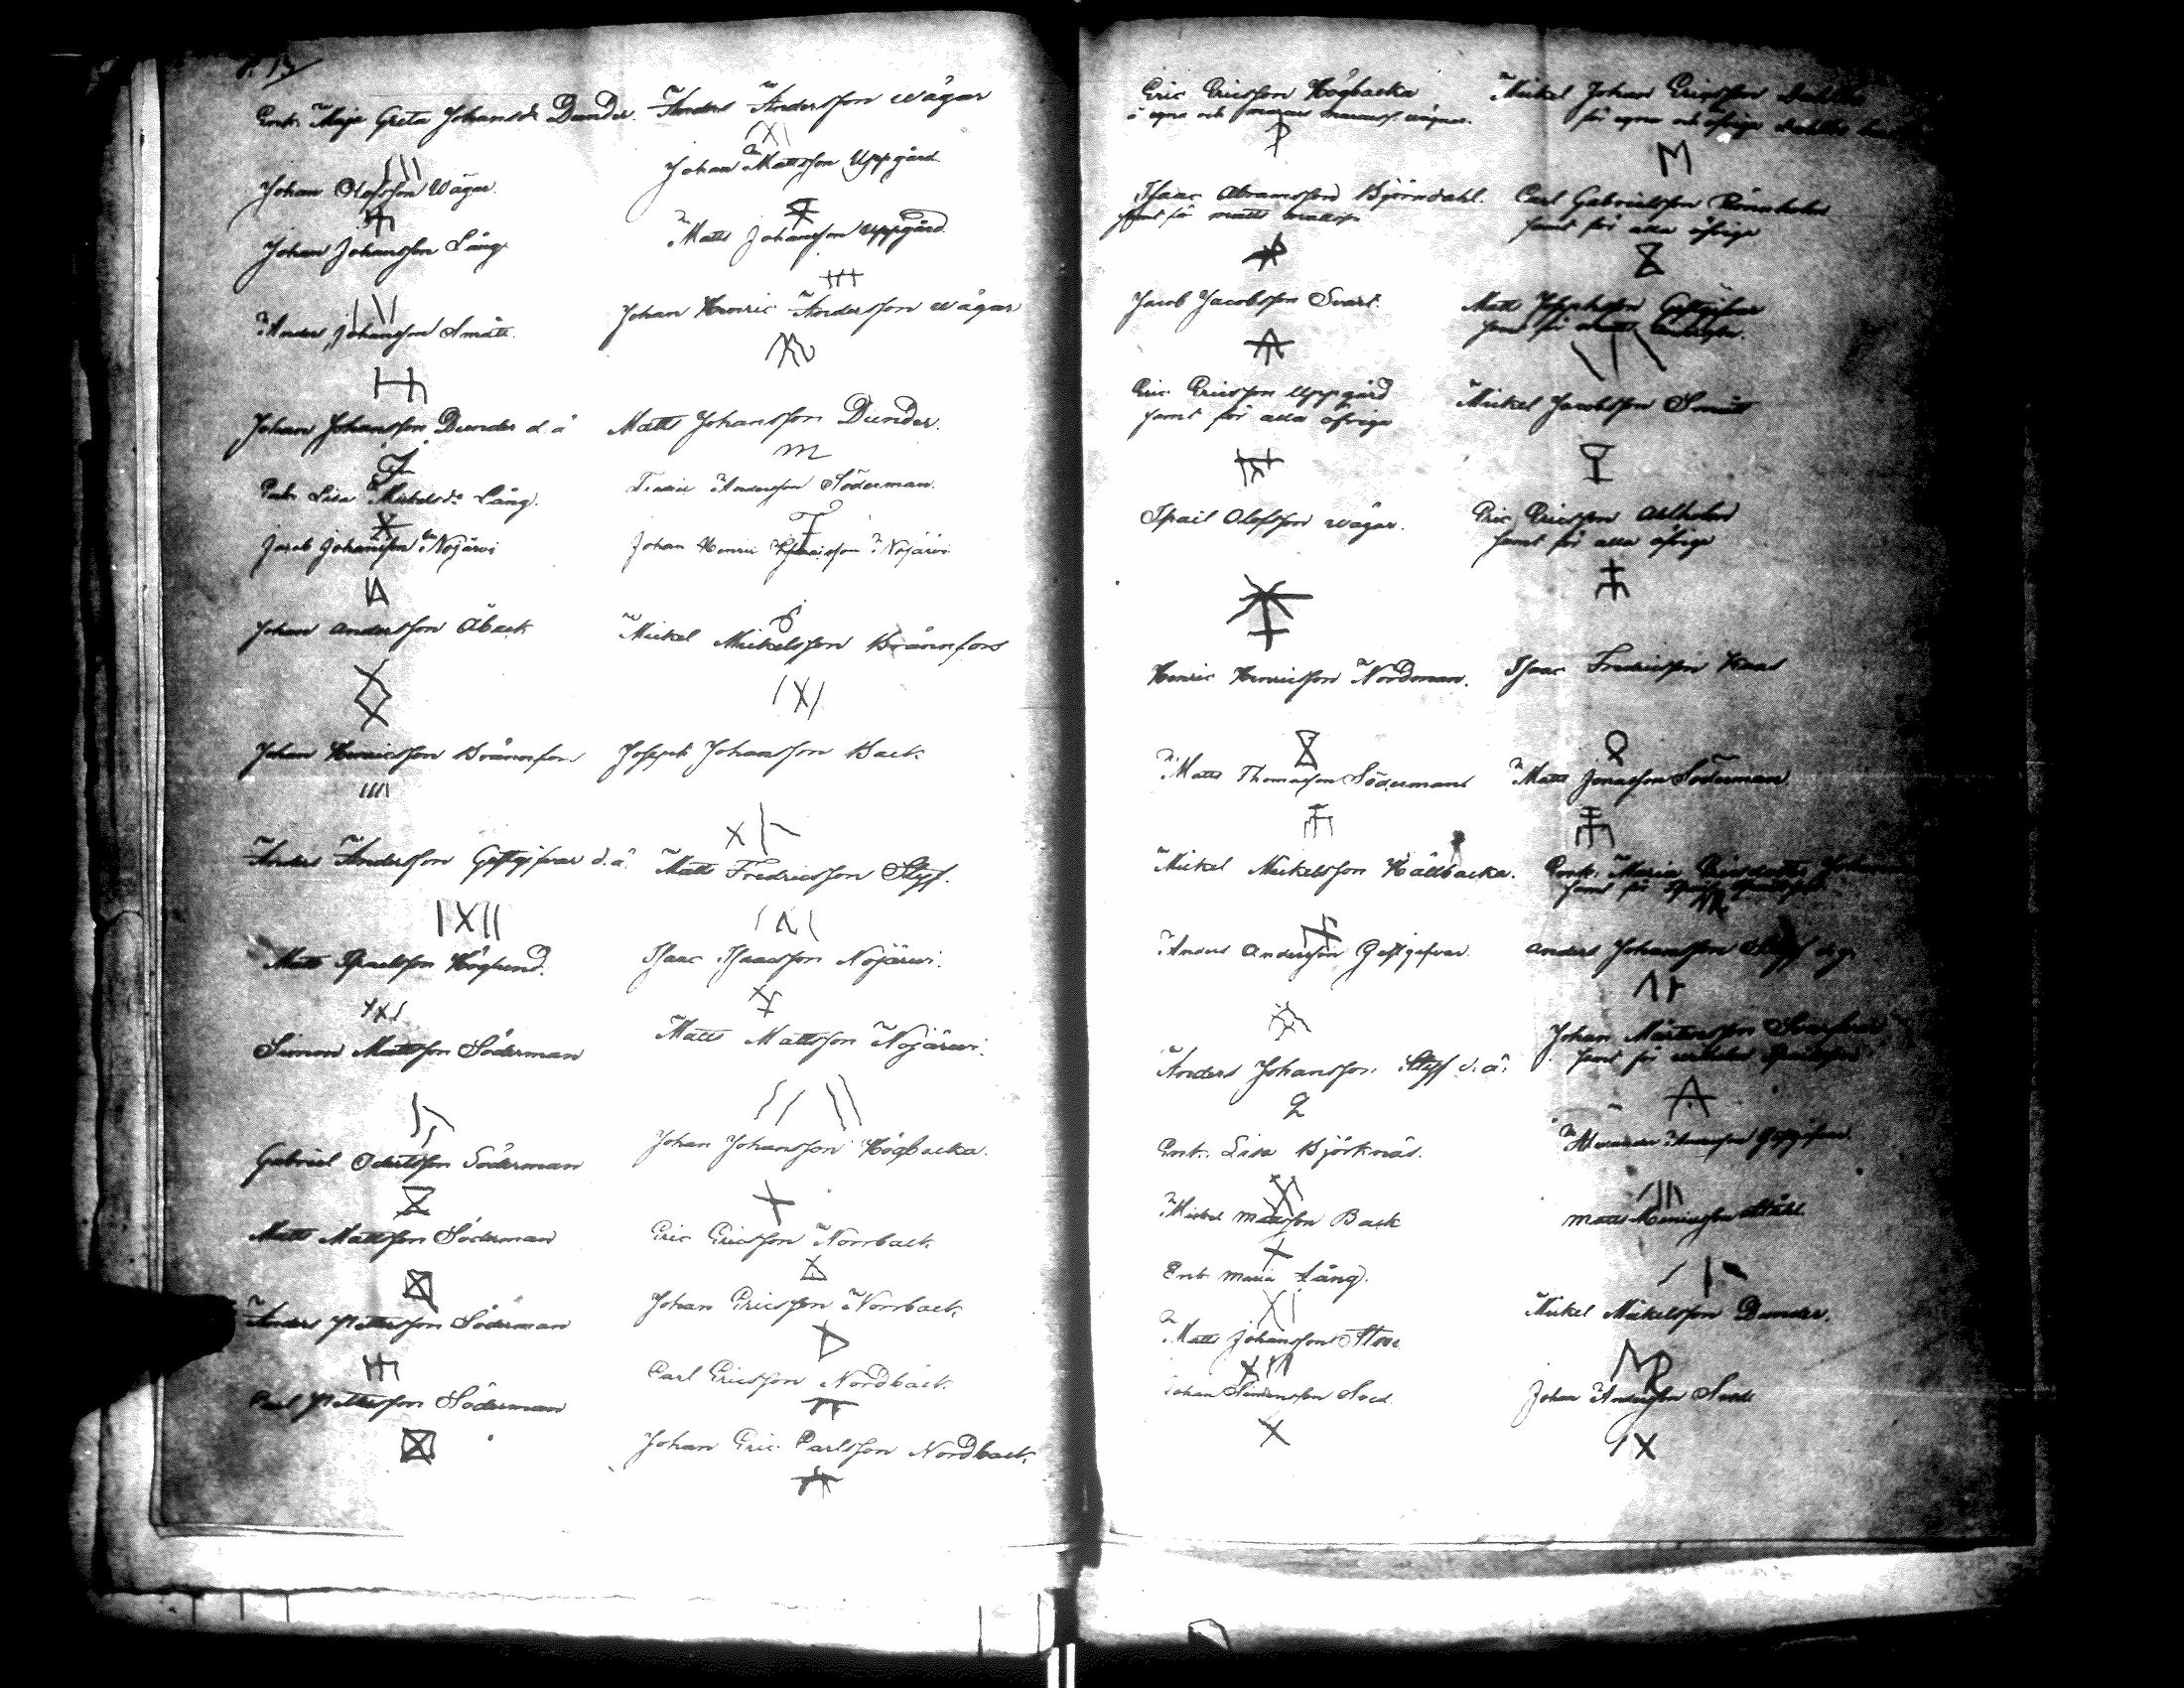 Enk. Maja Greta Johansdr Dunder.
Johan Olofsson Wägar.
Johan Johansson Lång
Anders Johansson Smått.
Johan Johansson Dunder d.ä
Enk. Lisa Mickelsdr Lång.
Jacob Johansson Nojärvi
Johan Andersson Åback
Johan Henricsson Brännfors
Anders Andersson Gestgifvar d.ä.
Matts Israelsson Höglund.
Simon Mattsson Söderman
Gabriel Söderman
Matts Mattsson Söderman
Anders Pettersson Söderman
Carl Pettersson Söderman
Anders Andersson Wägar
Johan Mattsson Uppgård
Matts Johansson Uppgård
Johan Henric Andersson Wägar
Matts Johansson Dunder.
Andersson Söderman.
Johan Henric Nojärvi
Mickel Mickelsson Brännfors
Joseph Johansson Back.
Matts Fredricsson Styf.
Isaac Isaacsson Nojärvi.
Matts Mattsson Nojärvi.
Johan Johansson Högbacka.
Eric Ericsson Norrback.
Johan Ericsson Norrback.
Carl Ericsson Nordback.
Johan Eric Carlsson Nordback.
Eric Ericsson Högbacka
å egna och vägnar.
Isaac Abramsson Björndahl.
samt för Matts Mattsson
Jacob Jacobsson Svart.
Eric Ericsson Uppgård
samt för alla öfriga
Israil Olofsson Wägar.
Henric Henricsson Nordman.
Matts Thomasson Söderman
Mickel Mickelsson Källbacka.
Anders Andersson Gestgifvar.
Anders Johansson Styf d.ä.
Enk. Lisa Björknäs.
Mickel Mattsson Back
Enk Maria Lång.
Matts Johansson Stoor
Johan Simonsson Sved.
Mickel Johan Ericsson
för egna och öfriga
Carl Gabrielsson
samt för alla öfriga
Matts Gestgifvar
samt för Matts
Mickel Jacobsson Smått
Eric Ericsson Ahlholm
samt för alla öfriga
Isaac Fredricsson
Matts Jonasson Söderman.
Enk. Maria Ericsdotter
samt för
Anders Johansson Styf d.y.
Johan Mårtensson
samt för
Andersson Gestgifvar.
Matts Henricsson Ståhl
Mickel Mickelsson Dunder.
Johan Andersson Sved